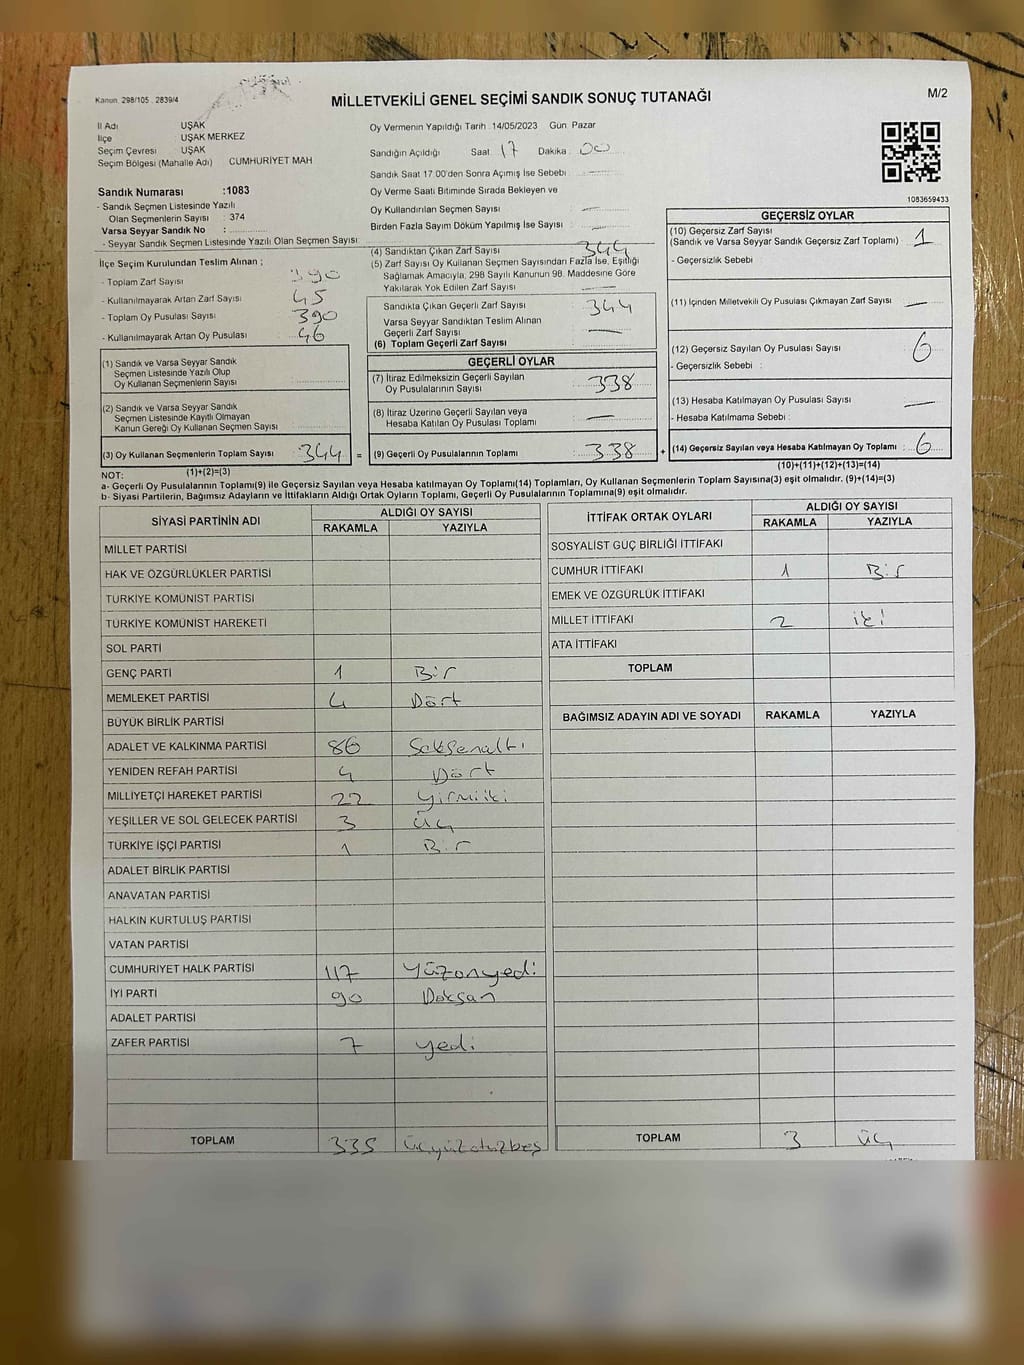 Kanun 298/105 . 2839/4
MİLLETVEKİLİ GENEL SEÇİMİ SANDIK SONUÇ TUTANAĞI
M/2
İl Adı UŞAK
İlçe UŞAK MERKEZ
Seçim Çevresi UŞAK
Seçim Bölgesi (Mahalle Adı) CUMHURİYET MAH
Sandık Numarası :1083
- Sandık Seçmen Listesinde Yazılı
Olan Seçmenlerin Sayısı : 374
Varsa Seyyar Sandık No :
- Seyyar Sandık Seçmen Listesinde Yazılı Olan Seçmen Sayısı
İlçe Seçim Kurulundan Teslim Alınan ;
- Toplam Zarf Sayısı 390
- Kullanılmayarak Artan Zarf Sayısı 45
- Toplam Oy Pusulası Sayısı 390
- Kullanılmayarak Artan Oy Pusulası 46
(1) Sandık ve Varsa Seyyar Sandık
Seçmen Listesinde Yazılı Olup
Oy Kullanan Seçmenlerin Sayısı
(2) Sandık ve Varsa Seyyar Sandık
Seçmen Listesinde Kayıtlı Olmayan
Kanun Gereği Oy Kullanan Seçmen Sayısı
(3) Oy Kullanan Seçmenlerin Toplam Sayısı : 344 =
(1)+(2)=(3)
Oy Vermenin Yapıldığı Tarih : 14/05/2023 Gün Pazar
Sandığın Açıldığı Saat 17 Dakika 00
Sandık Saat 17.00'den Sonra Açılmış İse Sebebi :
Oy Verme Saati Bitiminde Sırada Bekleyen ve
Oy Kullandırılan Seçmen Sayısı : —
Birden Fazla Sayım Döküm Yapılmış İse Sayısı : —
(4) Sandıktan Çıkan Zarf Sayısı 344
(5) Zarf Sayısı Oy Kullanan Seçmen Sayısından Fazla İse, Eşitliği
Sağlamak Amacıyla, 298 Sayılı Kanunun 98. Maddesine Göre
Yakılarak Yok Edilen Zarf Sayısı : —
Sandıkta Çıkan Geçerli Zarf Sayısı : 344
Varsa Seyyar Sandıktan Teslim Alınan
Geçerli Zarf Sayısı : —
(6) Toplam Geçerli Zarf Sayısı :
GEÇERLİ OYLAR
(7) İtiraz Edilmeksizin Geçerli Sayılan
Oy Pusulalarının Sayısı : 338
(8) İtiraz Üzerine Geçerli Sayılan veya
Hesaba Katılan Oy Pusulası Toplamı : —
(9) Geçerli Oy Pusulalarının Toplamı : 338 +
1083659433
GEÇERSİZ OYLAR
(10) Geçersiz Zarf Sayısı
(Sandık ve Varsa Seyyar Sandık Geçersiz Zarf Toplamı) : 1
- Geçersizlik Sebebi :
(11) İçinden Milletvekili Oy Pusulası Çıkmayan Zarf Sayısı : —
(12) Geçersiz Sayılan Oy Pusulası Sayısı : 6
- Geçersizlik Sebebi :
(13) Hesaba Katılmayan Oy Pusulası Sayısı : —
- Hesaba Katılmama Sebebi :
(14) Geçersiz Sayılan veya Hesaba Katılmayan Oy Toplamı : 6
(10)+(11)+(12)+(13)=(14)
NOT:
a- Geçerli Oy Pusulalarının Toplamı(9) ile Geçersiz Sayılan veya Hesaba katılmayan Oy Toplamı(14) Toplamları, Oy Kullanan Seçmenlerin Toplam Sayısına(3) eşit olmalıdır. (9)+(14)=(3)
b- Siyasi Partilerin, Bağımsız Adayların ve İttifakların Aldığı Ortak Oyların Toplamı, Geçerli Oy Pusulalarının Toplamına(9) eşit olmalıdır.
SİYASİ PARTİNİN ADI ALDIĞI OY SAYISI
RAKAMLA YAZIYLA
MİLLET PARTİSİ
HAK VE ÖZGÜRLÜKLER PARTİSİ
TÜRKİYE KOMÜNİST PARTİSİ
TÜRKİYE KOMÜNİST HAREKETİ
SOL PARTİ
GENÇ PARTİ 1 Bir
MEMLEKET PARTİSİ 4 Dört
BÜYÜK BİRLİK PARTİSİ
ADALET VE KALKINMA PARTİSİ 86 Seksenaltı
YENİDEN REFAH PARTİSİ 4 Dört
MİLLİYETÇİ HAREKET PARTİSİ 22 Yirmiiki
YEŞİLLER VE SOL GELECEK PARTİSİ 3 Üç
TÜRKİYE İŞÇİ PARTİSİ 1 Bir
ADALET BİRLİK PARTİSİ
ANAVATAN PARTİSİ
HALKIN KURTULUŞ PARTİSİ
VATAN PARTİSİ
CUMHURİYET HALK PARTİSİ 117 Yüzonyedi
İYİ PARTİ 90 Doksan
ADALET PARTİSİ
ZAFER PARTİSİ 7 Yedi
TOPLAM 335 üçyüzotuzbeş
İTTİFAK ORTAK OYLARI ALDIĞI OY SAYISI
RAKAMLA YAZIYLA
SOSYALİST GÜÇ BİRLİĞİ İTTİFAKI
CUMHUR İTTİFAKI 1 Bir
EMEK VE ÖZGÜRLÜK İTTİFAKI
MİLLET İTTİFAKI 2 iki
ATA İTTİFAKI
TOPLAM
BAĞIMSIZ ADAYIN ADI VE SOYADI RAKAMLA YAZIYLA
TOPLAM 3 üç